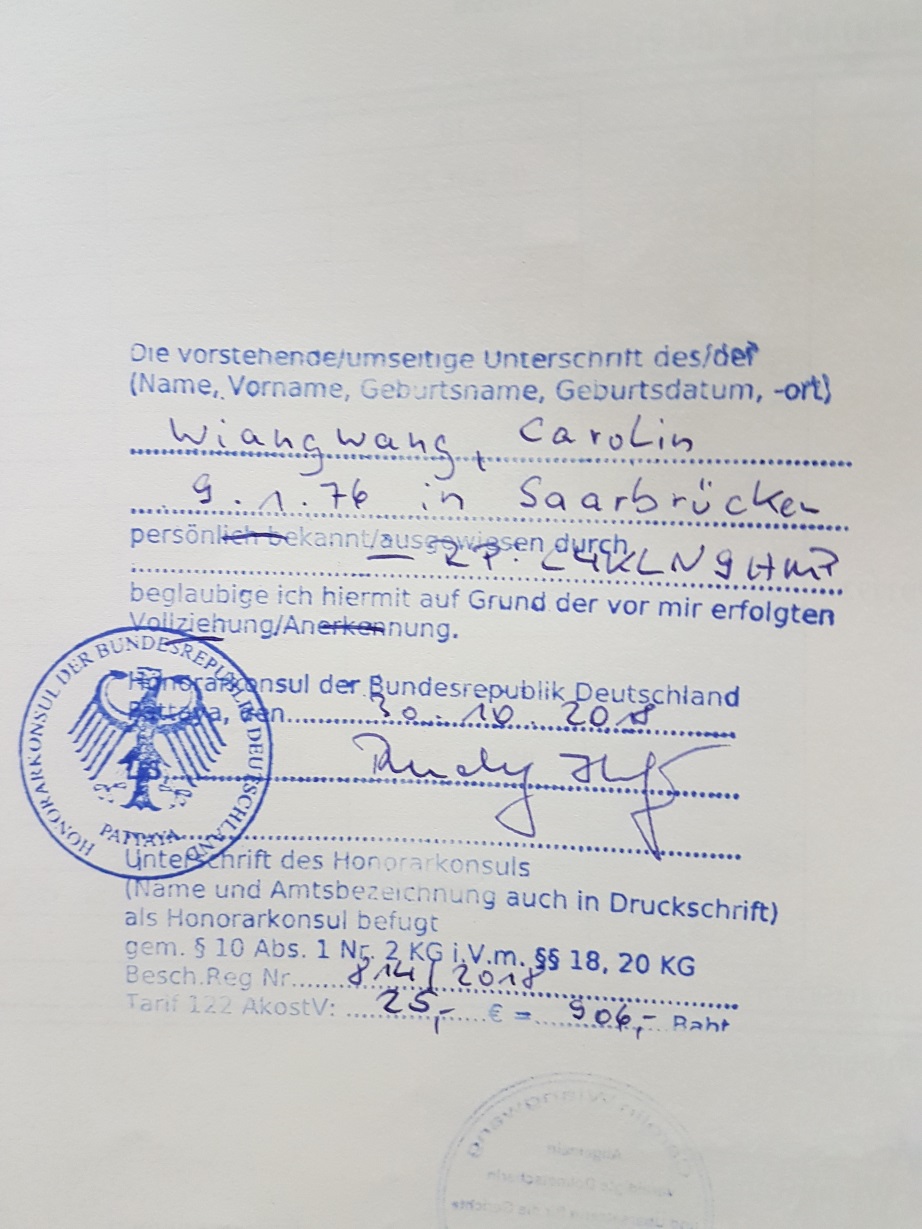 Die vorstehende/umseitige Unterschrift des/der
(Name, Vorname, Geburtsname, Geburtsdatum, -ort)
Wiangwang, Carolin
9.1.76 in Saarbrücken
persönlich bekannt/ausgewiesen durch
— RP.
beglaubige ich hiermit auf Grund der vor mir erfolgten
Vollziehung/Anerkennung.
Honorarkonsul der Bundesrepublik Deutschland
Pattaya, den 30.10.2018
HONORARKONSUL DER BUNDESREPUBLIK DEUTSCHLAND
PATTAYA
Unterschrift des Honorarkonsuls
(Name und Amtsbezeichnung auch in Druckschrift)
als Honorarkonsul befugt
gem. § 10 Abs. 1 Nr. 2 KG i.V.m. §§ 18, 20 KG
Besch.Reg Nr. 814/2018
Tarif 122 AkostV: 25,- € = 906,- Baht